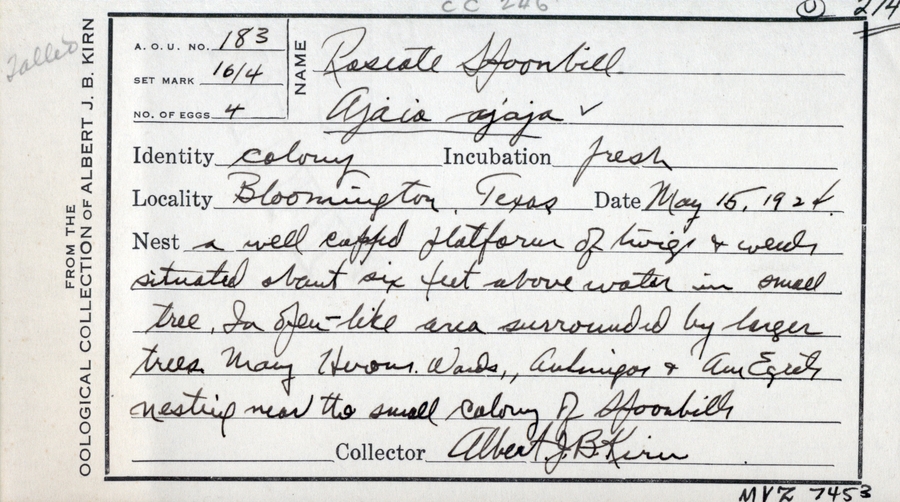 CC 246
214
Tallied
FROM THE
OOLOGICAL COLLECTION OF ALBERT J. B. KIRN
A. O. U. NO. 183
SET MARK 16/4
NO. OF EGGS 4
NAME Roseate Spoonbill
Ajaia ajaja ✓
Identity colony Incubation fresh
Locality Bloomington, Texas Date May 15, 1924.
Nest a well cupped platform of twigs & weeds
situated about six feet above water in small
tree. In open-like area surrounded by larger
trees. Many Herons. Wards,, Anhingas & Am Egrets
nesting near the small colony of Spoonbills
Collector Albert J. B. Kirn
MVZ 7453